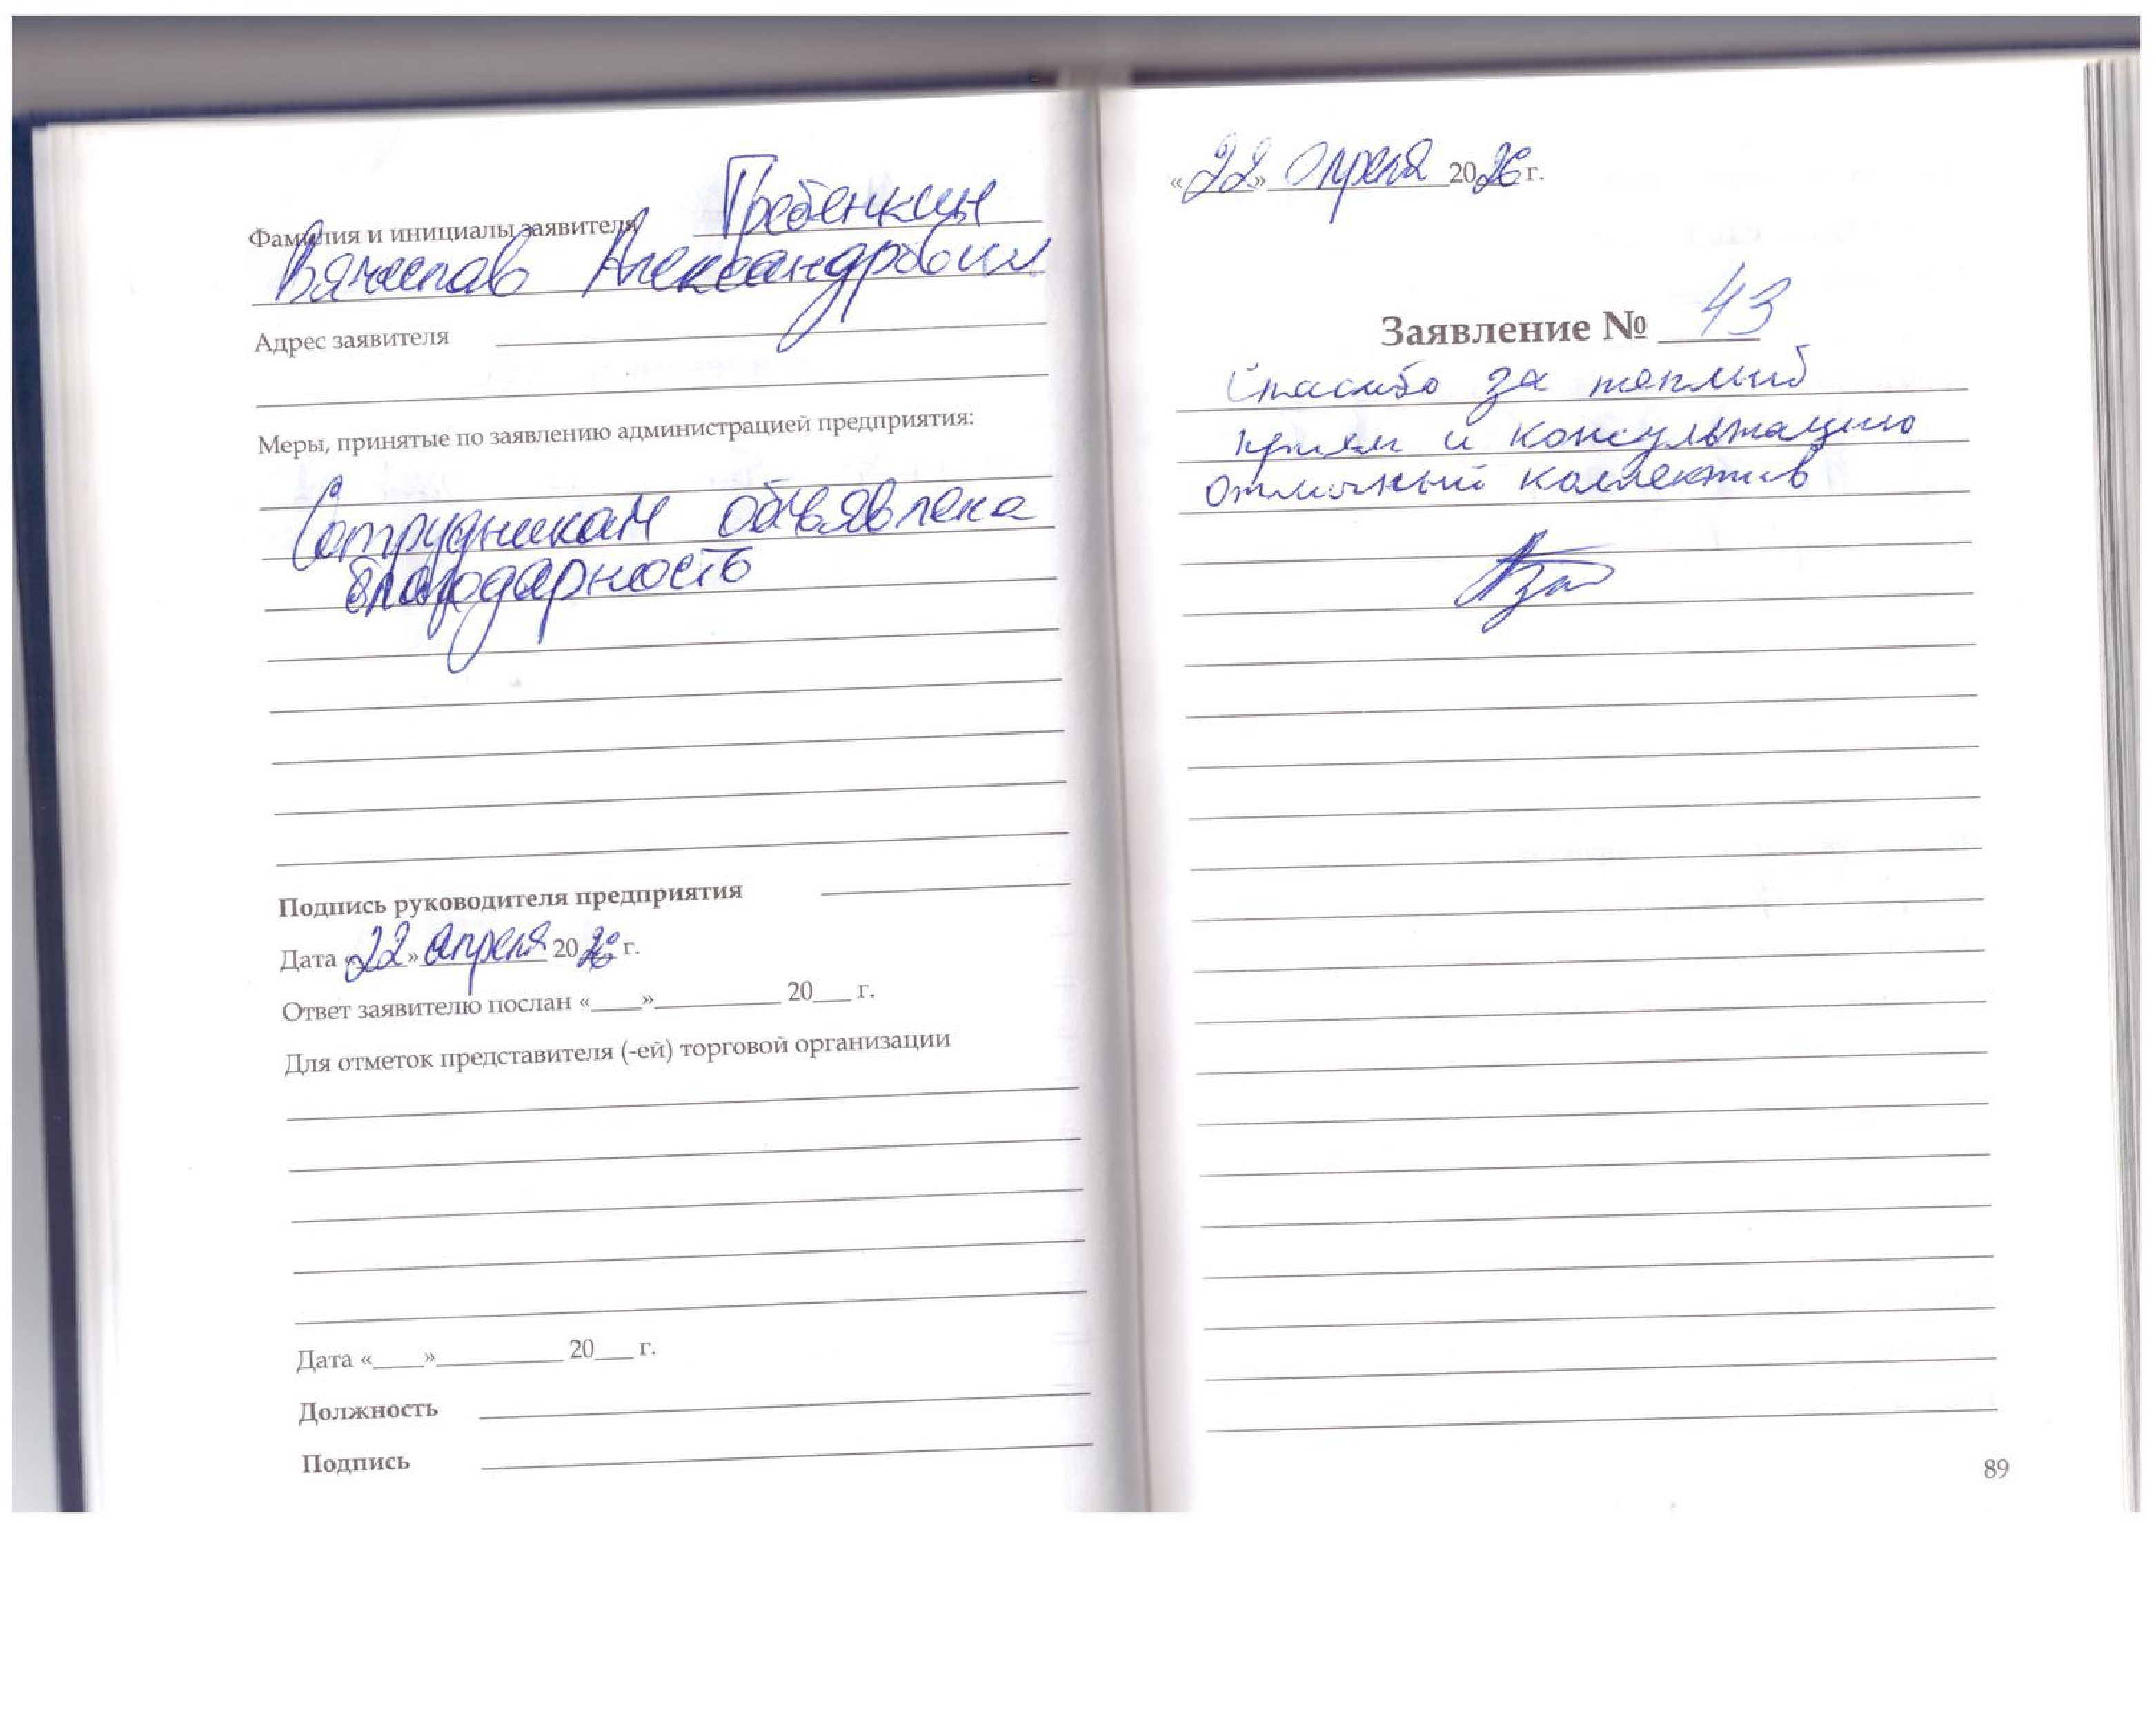 Фамилия и инициалы заявителя Гребенкин
Вячеслав Александрович
Адрес заявителя
Меры, принятые по заявлению администрацией предприятия:
Сотрудникам объявлена
благодарность
Подпись руководителя предприятия
Дата «22» апреля 2026 г.
Ответ заявителю послан «____»__________ 20___ г.
Для отметок представителя (-ей) торговой организации
Дата «____»__________ 20___ г.
Должность
Подпись
«22» апреля 2026 г.
Заявление № 43
Спасибо за теплый
прием и консультацию
Отличный коллектив
89